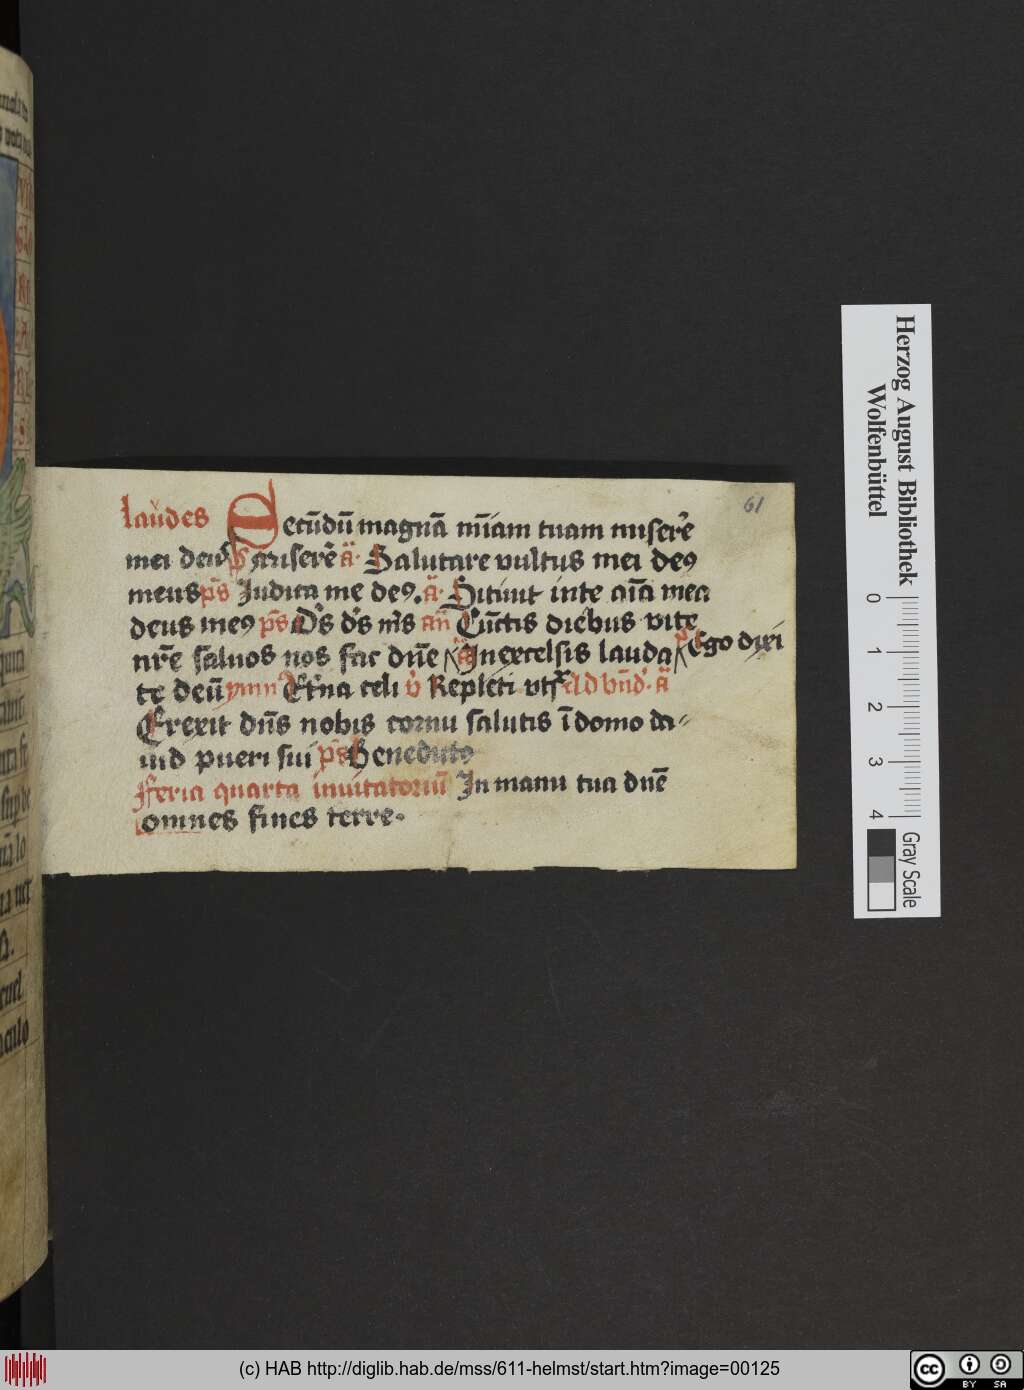 61
laudes Secūdū magnā mīam tuam miserē
mei deus pͥs miserē ā. Salutare vultus mei deꝰ
meus p̄s Judica me deꝰ. ā. Sitiuit in te aīa mea
deus meꝰ p̄s Ds ds ms an̄ Cūctis diebus vite
nr̄e saluos nos fac dn̄e p̄s Ego dixi ā In excelsis lauda
te deū ymn̄ Et̄na celi v̊ Repleti vts̄ Ad bn̄d. ā
Erexit dn̄s nobis cornu salutis ī domo da-
uid pueri sui p̄s Benedicto
Feria quarta inuitatoriū In manu tua dn̄e
omnes fines terre.
Herzog August Bibliothek
Wolfenbüttel
0 1 2 3 4
Gray Scale
(c) HAB http://diglib.hab.de/mss/611-helmst/start.htm?image=00125
cc BY SA